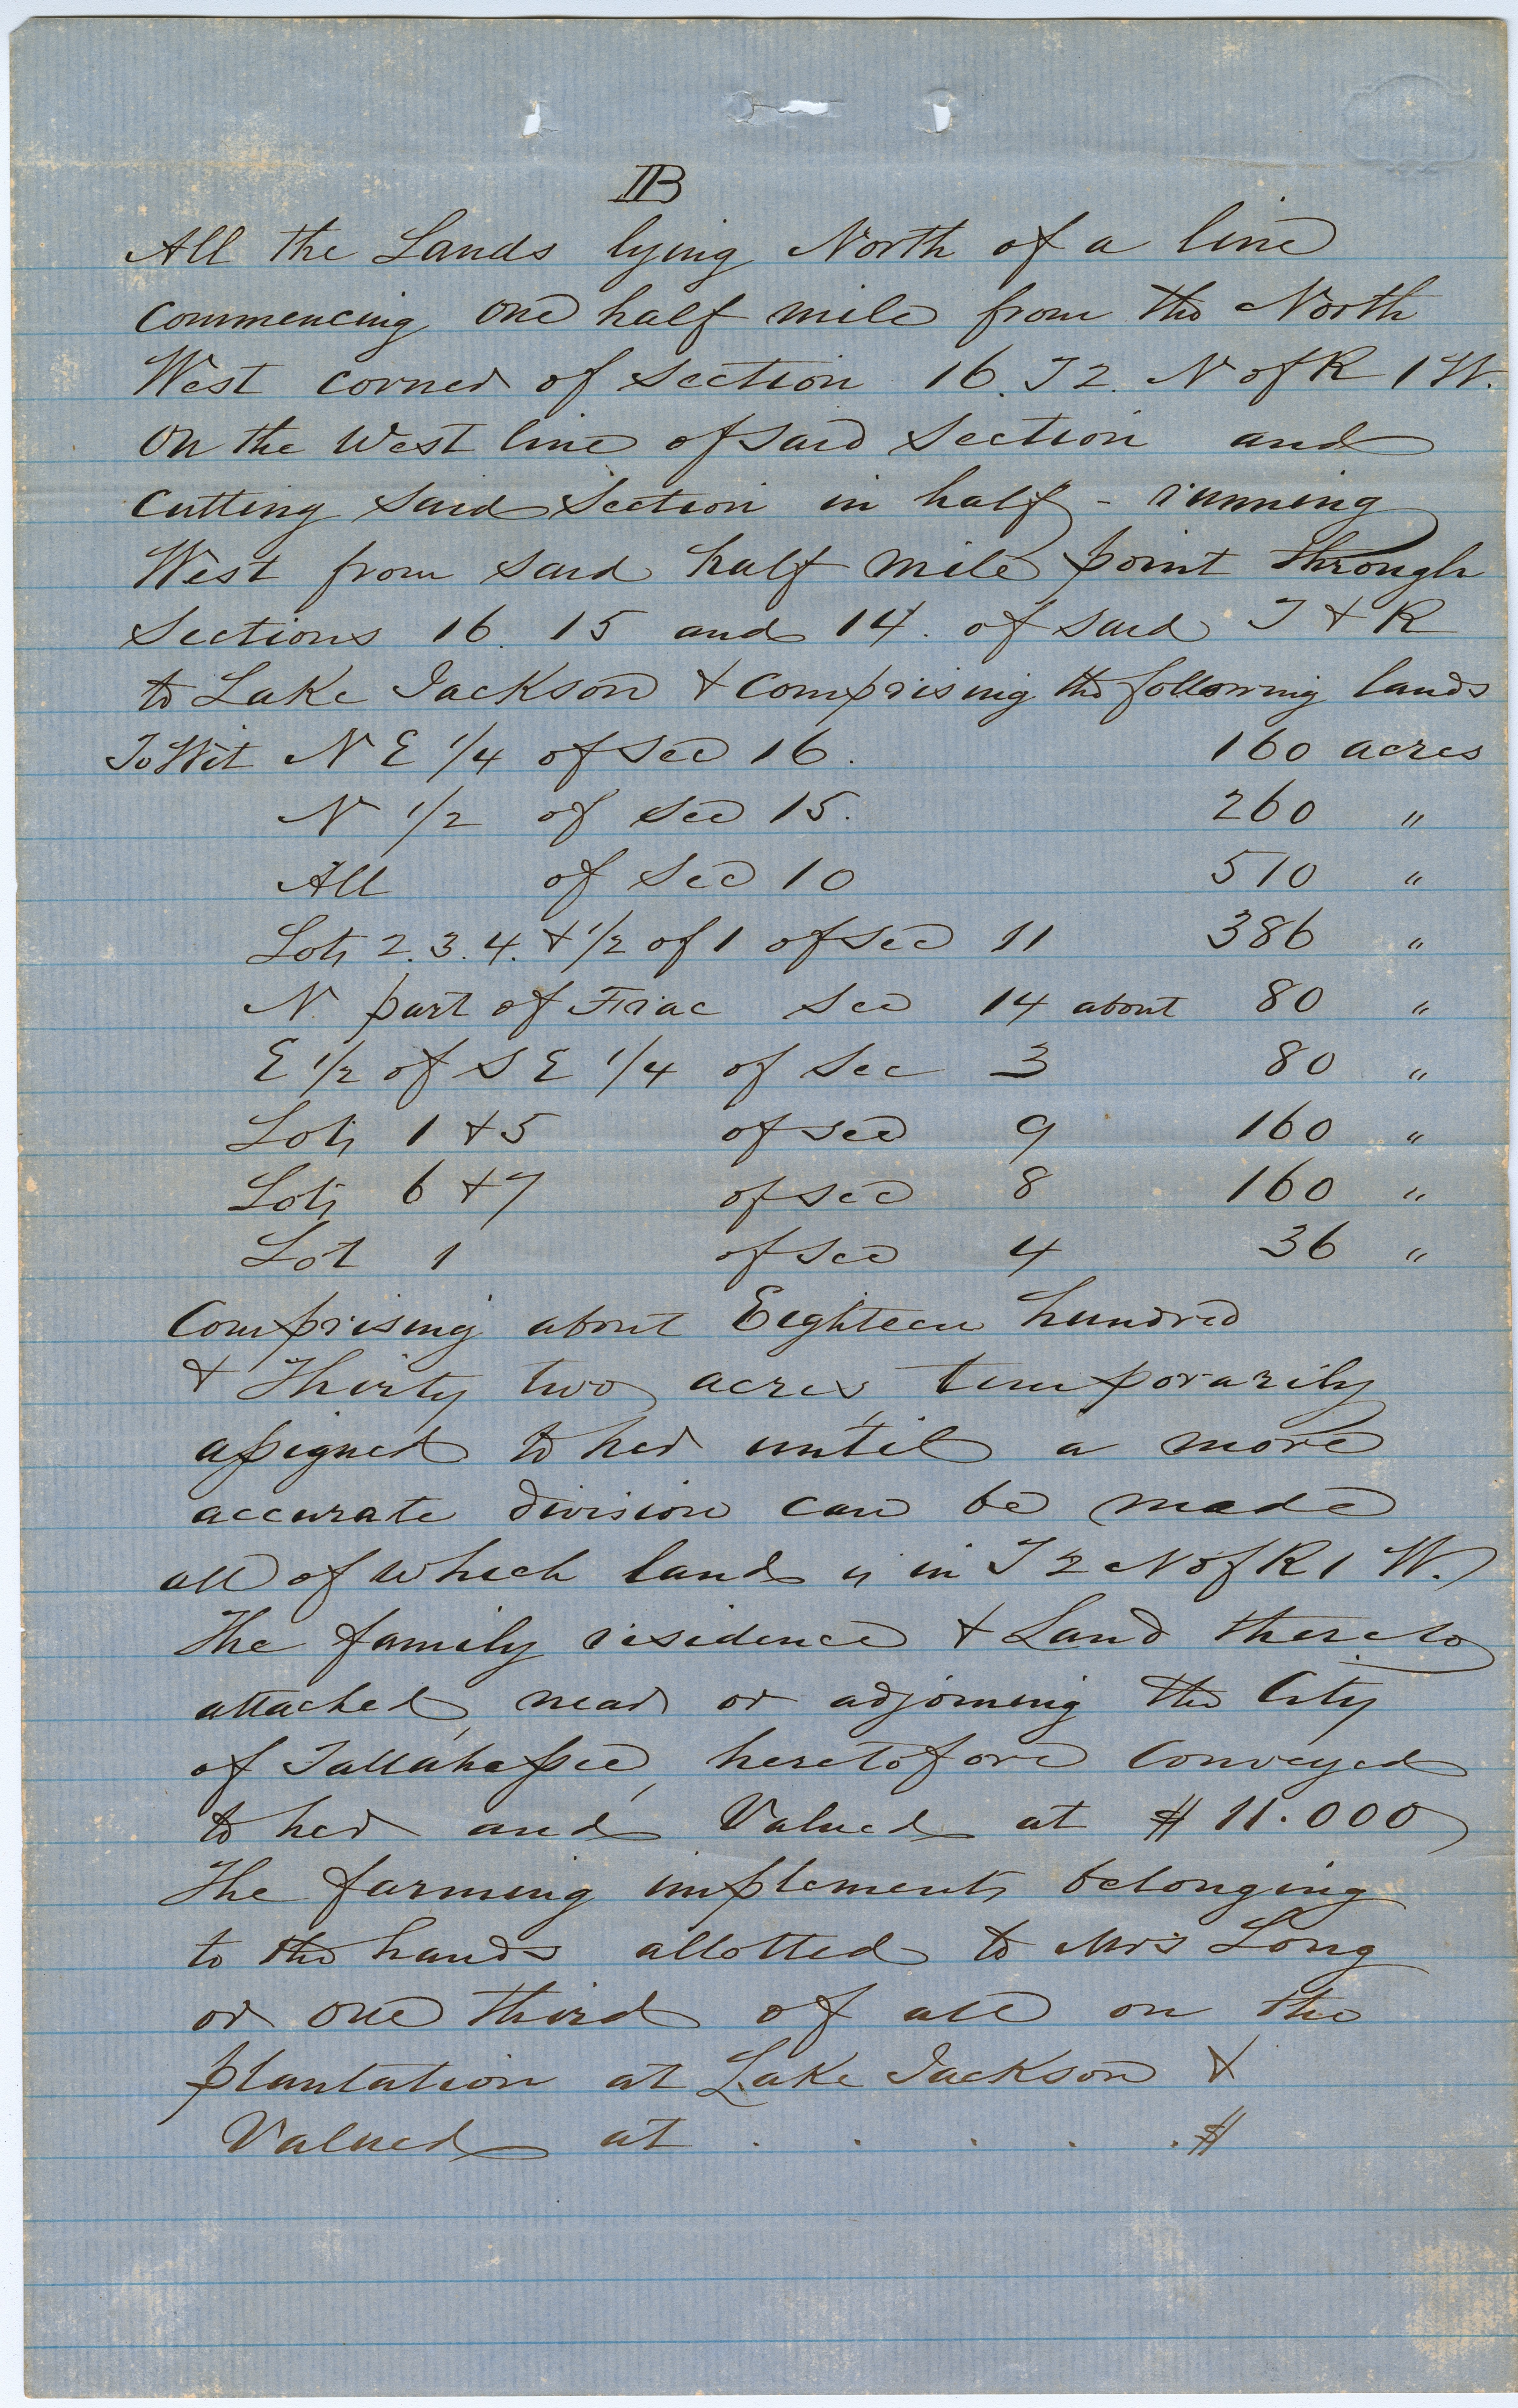 IIB
All the Lands lying North of a line
commencing one half mile from the North
West corner of Section 16. T 2. N of R 1 W.
on the West line of said Section and
cutting said Section in half - running
West from said half mile point through
Sections 16. 15 and 14. of said T & R
to Lake Jackson & comprising the following lands
To Wit N E 1/4 of Sec 16. 160 acres
N 1/2 of Sec 15. 260 "
All of Sec 10 510 "
Lots 2. 3. 4. & 1/2 of 1 of Sec 11 386 "
N. part of Frac Sec 14 about 80 "
E 1/2 of S E 1/4 of Sec 3 80 "
Lots 1 & 5 of Sec 9 160 "
Lots 6 & 7 of Sec 8 160 "
Lot 1 of Sec 4 36 "
Comprising about Eighteen hundred
& Thirty two acres, temporarily
assigned to her until a more
accurate division can be made
all of which land is in T 2 N of R 1 W.
The family residence & Land thereto
attached, near or adjoining the City
of Tallahassee, heretofore conveyed
to her and Valued at $ 11.000
The farming implements belonging
to the hands allotted to Mrs Long
or one third of all on the
plantation at Lake Jackson &
Valued at . . . . . $